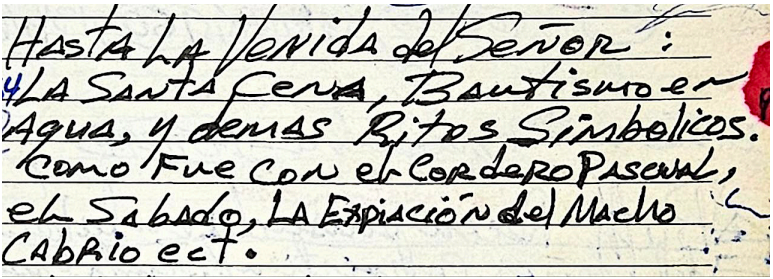 Hasta La Venida del Señor :
4 LA Santa Cena, Bautismo en
Agua, y demas Ritos Simbolicos.
Como Fue Con el Cordero Pascual,
el Sabado, LA Expiación del Macho
CABRIO ect.